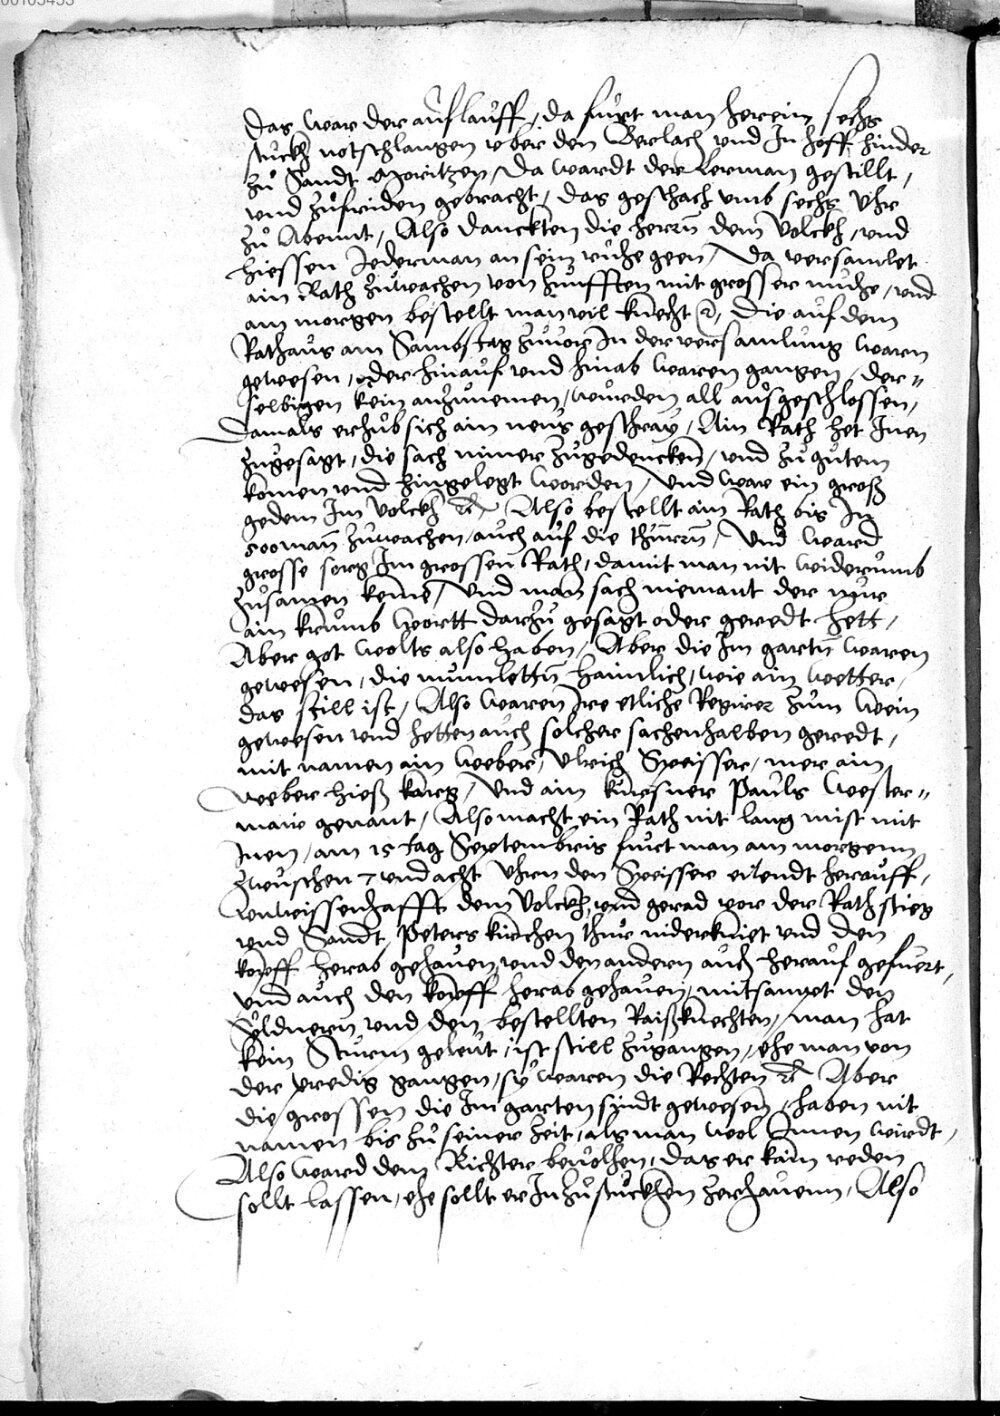 das war der auflauff, da fuert man herein sechs
stuckh notschlangen vber den Berlach vnd In hoff hinder
zů Sandt Moritzen, Da wardt der Lerman gestillt,
vnd zůfriden gebracht, das geschach vmb sechs Vhr
zů Abennt, Also danckten die herrn dem Volckh, vnd
hiessen Jederman an sein růhe geen, Da versamlet
ain Rath zůwachen von zunfften mit grosser muhe, vnd
am morgen bestellt man vil knecht ꝛc, Die auf dem
Rathaus am Sambstag zůuor In der versamlung warn
gewesen, oder hinauf vnd hinab waren gangen, der=
selbigen kein anzůnemen, wurden all außgeschlossen,
Damals erhůb sich ain neus geschray, Ain Rath het Inen
zůgesagt, die sach nimer zůgedencken, vnd zů gůtem
komen vnd hingelegt worden, Vnd war ein groß
gedem Im Volckh ꝛc, Also bestellt ain Rath bis In
500 man zůwachen, auch auf die thurn, Vnd ward
grosse sorg Im grossen Rath, damit man nit widerumb
zůsamen keme, Vnd man sach niemant der nur
ain krumb wortt darzů gesagt oder geredt hett,
Aber got wolts also haben, Aber die Im garten waren
gewesen, die mumletten haimlich, wie ain wetter,
das still ist, Also waren Ire etliche zum wein
gewesen vnd hetten auch solcher sachenhalben geredt,
mit namen ain weber, Vlrich Speisser, mer ain
weber hieß karg, Vnd ain kursner Pauls Wester=
mair genant, Also macht ein Rath nit lang mist mit
Inen, am 15 tag Septembris fuert man am morgenn
zwuschen 7 vnd acht Vhrn den Speisser eilendt herauff,
vnwissenhafft dem Volckh, vnd gerad vor der Rath stieg
vnd Sandt Peters kirchen thur niderkniet vnd den
kopff herab gehauen, vnd den andern auch herauf gefuert,
vnd auch den kopff herab gehauen, mitsampt den
Söldnern vnd den bestellten Raißknechten, man hat
kein Sturm geleut, ist still zůgangen, ehe man von
der predig gangen, sy waren die Rechten ꝛc Aber
die grossen die Im garten syndt gewesen, haben nit
namen bis zů seiner zeit, als man wol Innen wirdt,
Also ward dem Richter beuolhen, das er kain reden
sollt lassen, ehe sollt er In zů stuckhen zerhauenn, Also